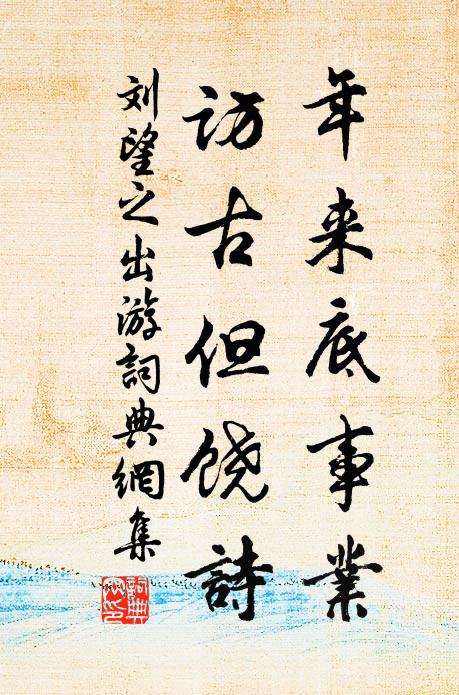 年来底事業
访古但饶詩
刘望之出游詞典網集